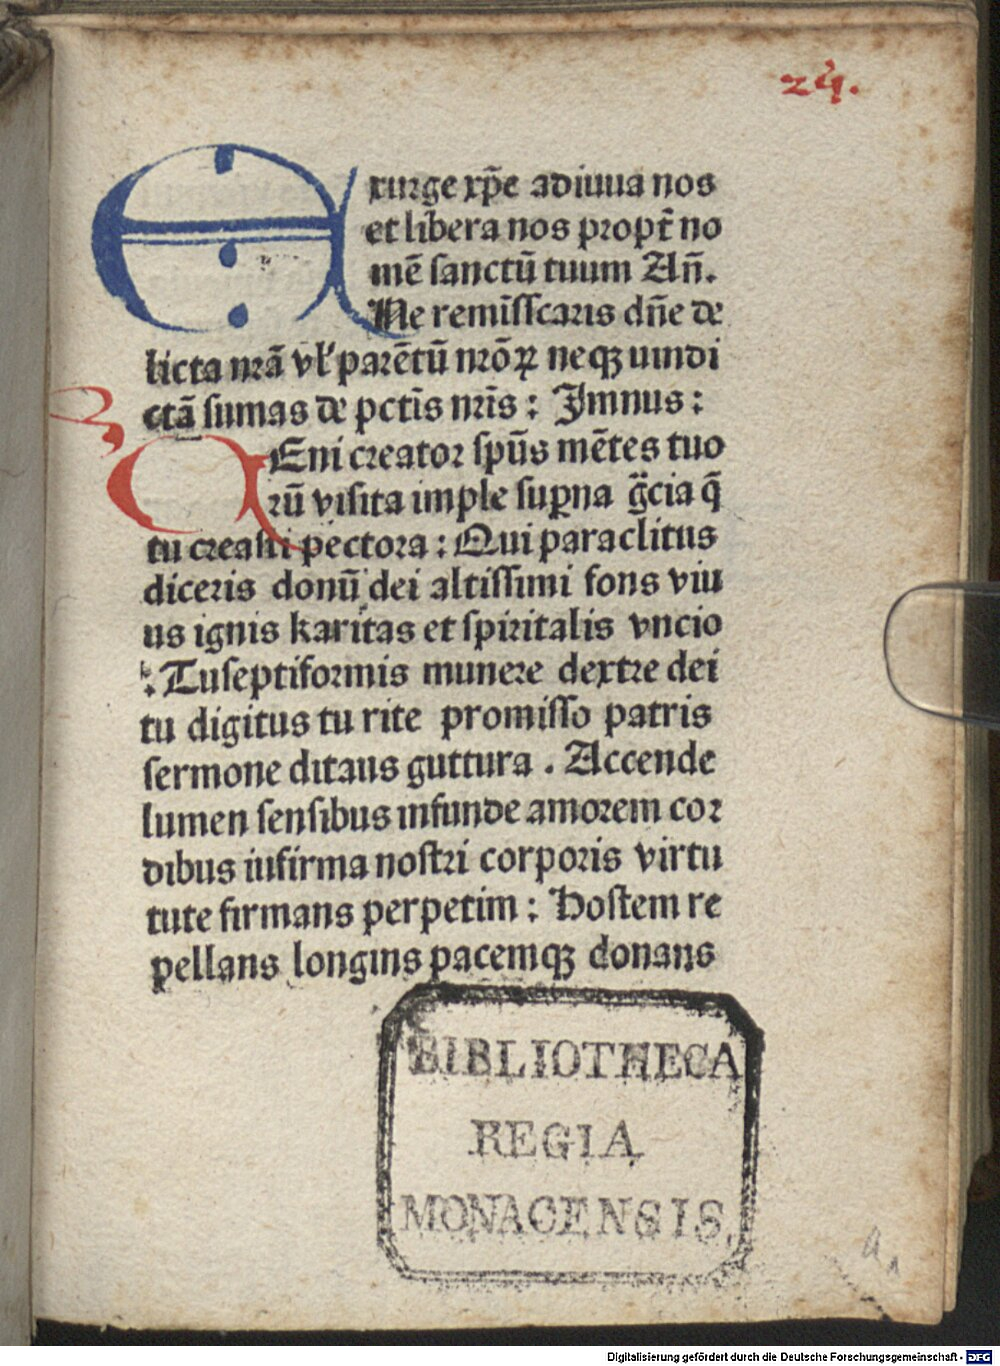 24.
Exurge xp̄e adiuua nos
et libera nos propt̄ no
mē sanctū tuum Añ.
Ne remīsscaris dñe de
licta nrā vl' parētū nrōꝝ neqꝫ uindi
ctā sumas de pctīs nrīs : Jmnus :
VEni creator spūs mētes tuo
rū visita imple suꝑna gͣcia q̄
tu creasti pectora : Qui paraclitus
diceris donū dei altissimi fons viu
us ignis karitas et spiritalis vncio
: Tu septiformis munere dextre dei
tu digitus tu rite promisso patris
sermone ditaus guttura . Accende
lumen sensibus infunde amorem cor
dibus iufirma nostri corporis virtu
tute firmans perpetim : Hostem re
pellans longius pacemqꝫ donans
BIBLIOTHECA
REGIA
MONACENSIS.
Digitalisierung gefördert durch die Deutsche Forschungsgemeinschaft - DFG